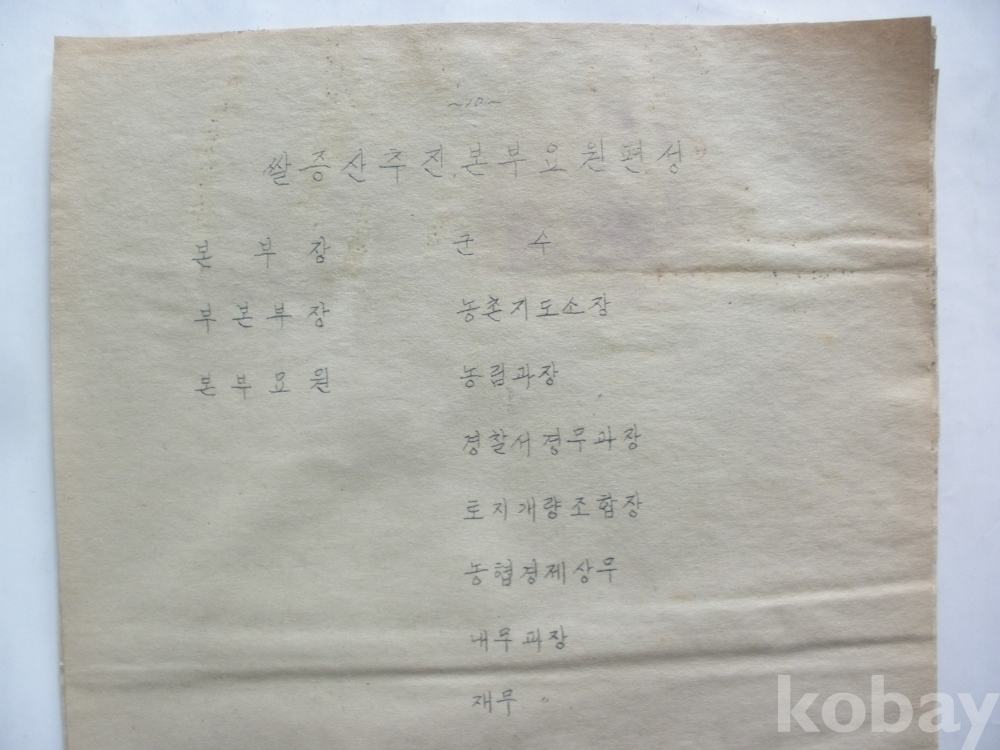 ~10~
쌀증산추진본부요원편성
본부장 군수
부본부장 농촌지도소장
본부요원 농림과장
경찰서경무과장
토지개량조합장
농협경제상무
내무과장
재무 〃
kobay